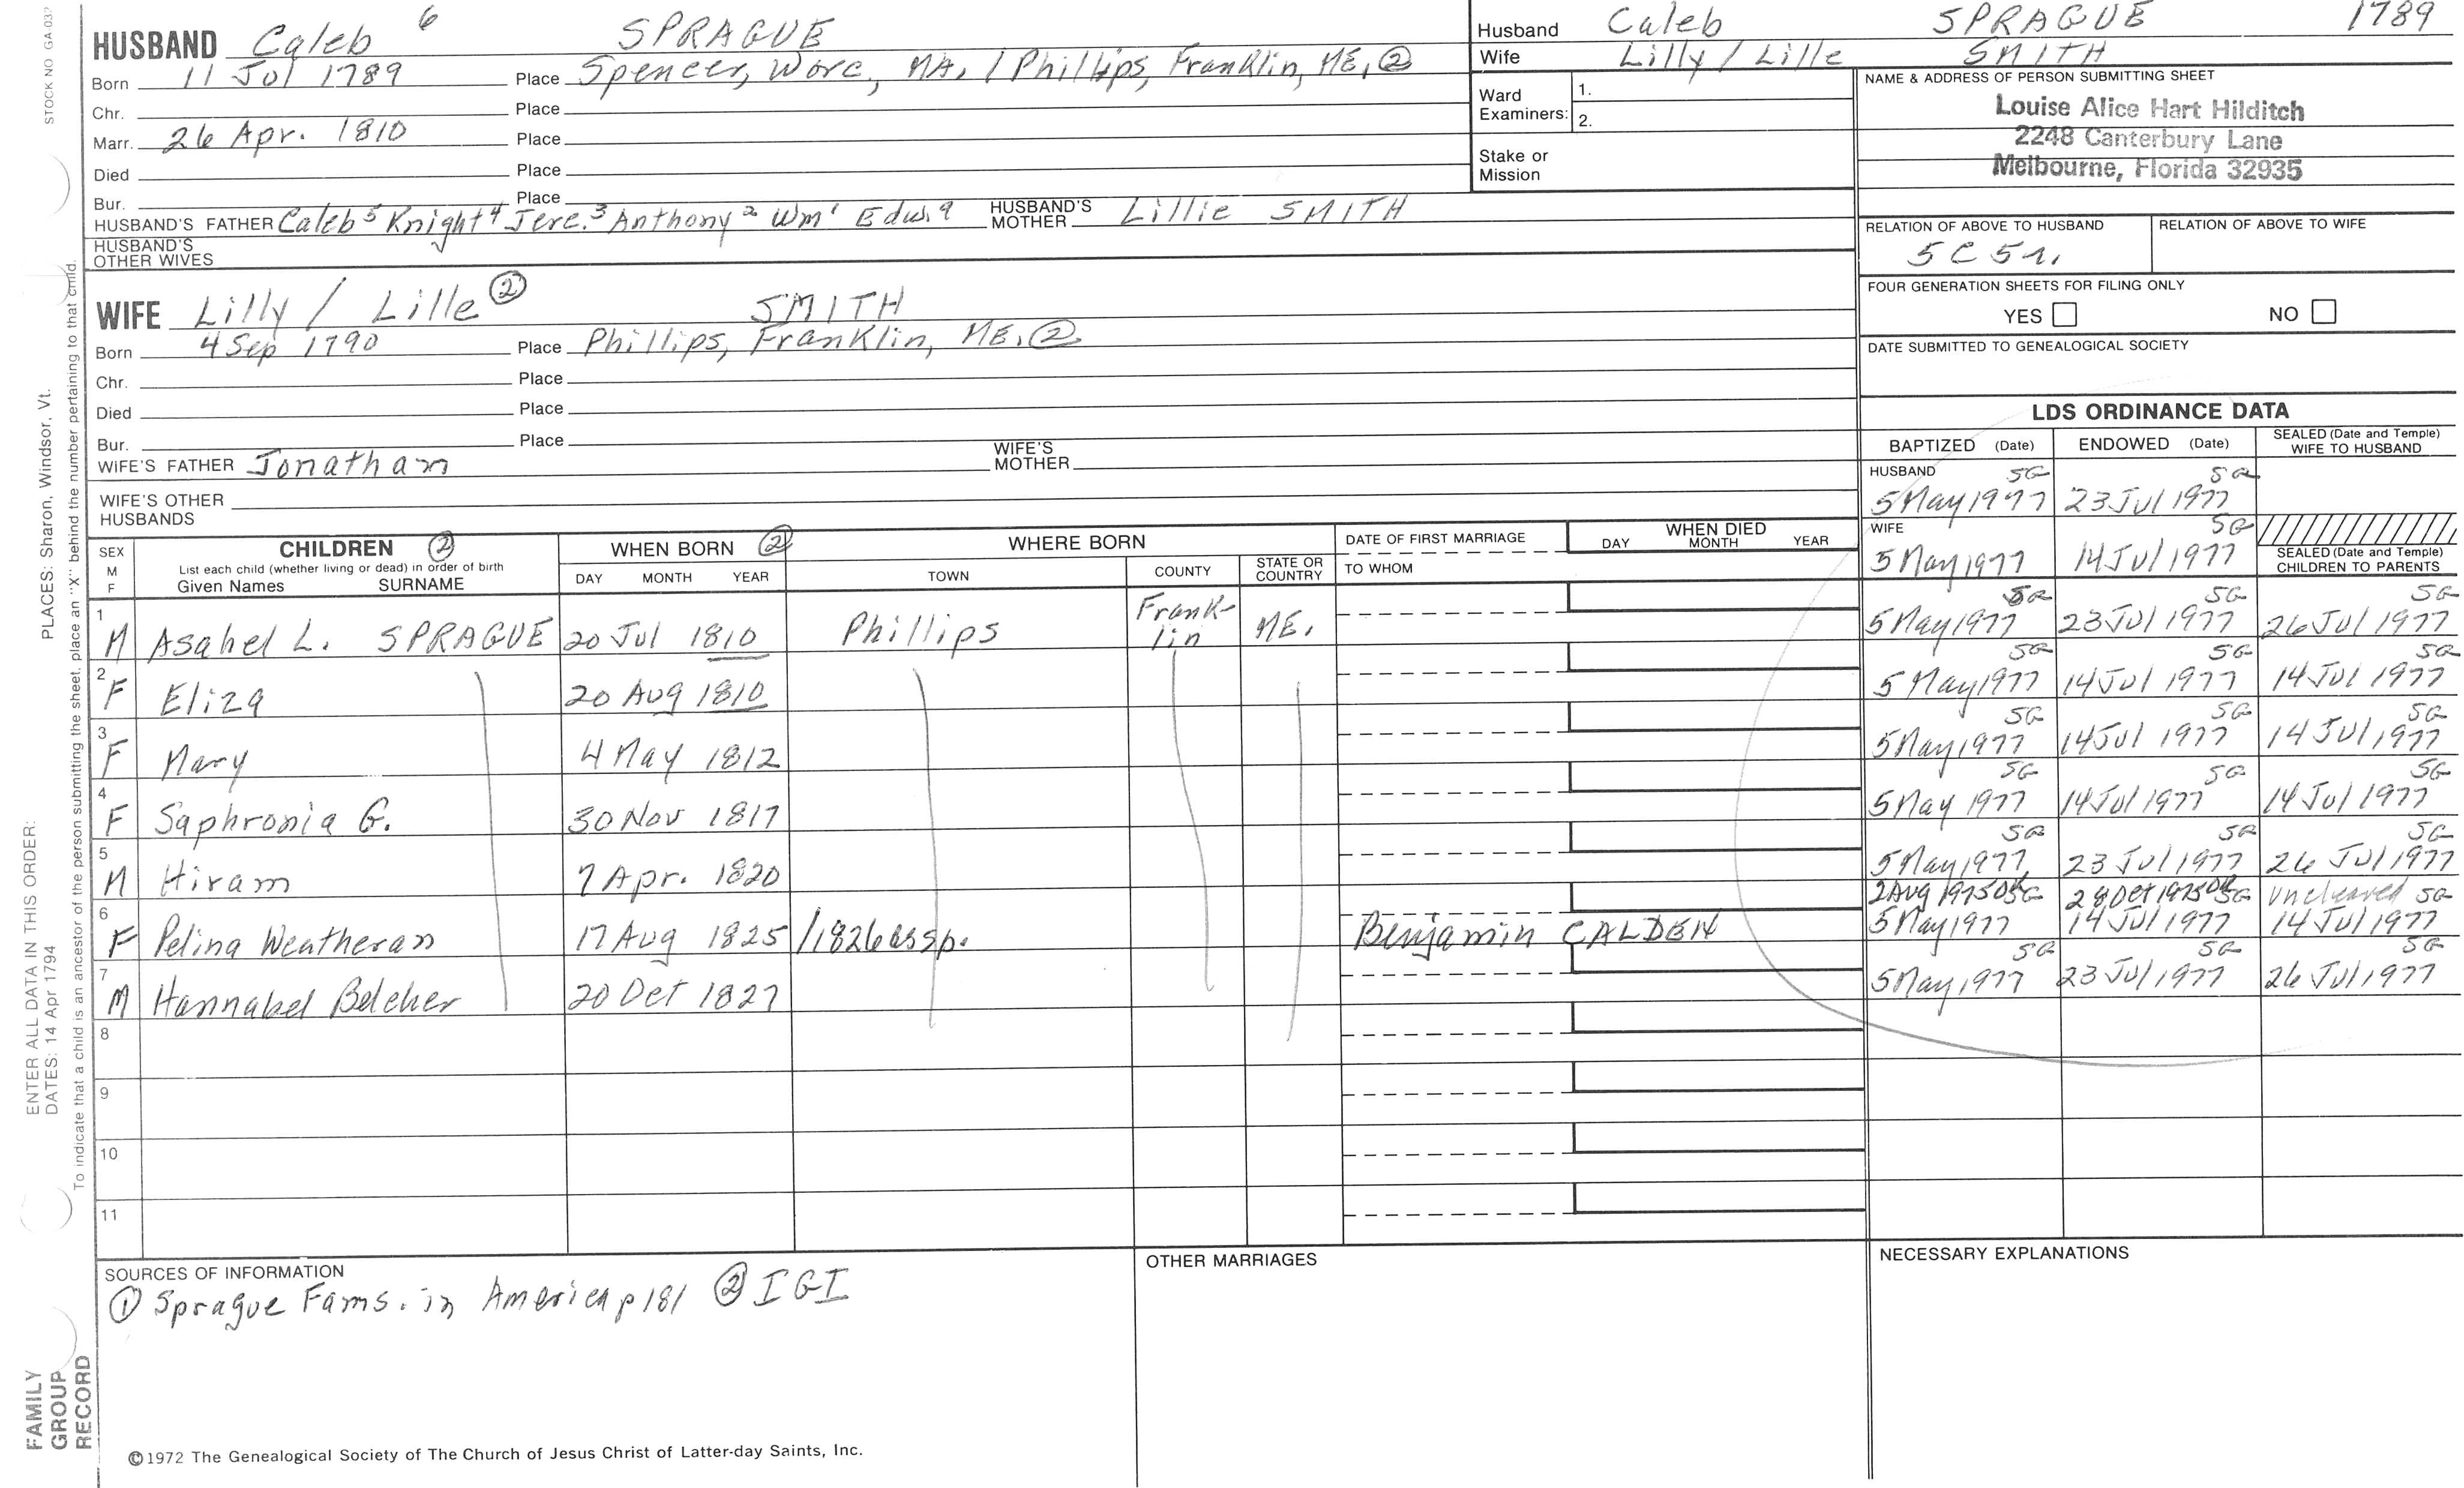 STOCK NO GA-03
HUSBAND Caleb 6 SPRAGUE
Born 11 Jul 1789 Place Spencer, Worc, MA. / Phillips, Franklin, ME, ②
Chr. Place
Marr. 26 Apr. 1810 Place
Died Place
Bur. Place
HUSBAND'S FATHER Caleb 5 Knight 4 Jere. 3 Anthony 2 Wm 1 Edw. 9 HUSBAND'S MOTHER Lillie SMITH
HUSBAND'S OTHER WIVES
WIFE Lilly / Lille ② SMITH
Born 4 Sep 1790 Place Phillips, Franklin, ME. ②
Chr. Place
Died Place
Bur. Place
WIFE'S FATHER Jonatham WIFE'S MOTHER
WIFE'S OTHER HUSBANDS
Husband Caleb SPRAGUE 1789
Wife Lilly / Lille SMITH
Ward Examiners: 1.
2.
Stake or Mission
NAME & ADDRESS OF PERSON SUBMITTING SHEET
Louise Alice Hart Hilditch
2248 Canterbury Lane
Melbourne, Florida 32935
RELATION OF ABOVE TO HUSBAND RELATION OF ABOVE TO WIFE
5C5r.
FOUR GENERATION SHEETS FOR FILING ONLY
YES NO
DATE SUBMITTED TO GENEALOGICAL SOCIETY
LDS ORDINANCE DATA
BAPTIZED (Date) ENDOWED (Date) SEALED (Date and Temple) WIFE TO HUSBAND
HUSBAND SG SG
5 May 1977 23 Jul 1977
WIFE SG
5 May 1977 14 Jul 1977 SEALED (Date and Temple) CHILDREN TO PARENTS
SEX M F CHILDREN ② WHEN BORN ② WHERE BORN DATE OF FIRST MARRIAGE WHEN DIED
List each child (whether living or dead) in order of birth DAY MONTH YEAR
Given Names SURNAME DAY MONTH YEAR TOWN COUNTY STATE OR COUNTRY TO WHOM
1 M Asahel L. SPRAGUE 20 Jul 1810 Phillips Frank-lin ME. 5 May 1977 SG 23 Jul 1977 SG 26 Jul 1977 SG
2 F Eliza 20 Aug 1810 5 May 1977 SG 14 Jul 1977 SG 14 Jul 1977 SG
3 F Mary 4 May 1812 5 May 1977 SG 14 Jul 1977 SG 14 Jul 1977 SG
4 F Saphronia G. 30 Nov 1817 5 May 1977 SG 14 Jul 1977 SG 14 Jul 1977 SG
5 M Hiram 7 Apr. 1820 5 May 1977 SG 23 Jul 1977 SG 26 Jul 1977 SG
2 Aug 1975 SG 28 Oct 1975 SG Uncleared SG
6 F Pelina Weatheran 17 Aug 1825 /1826 assp. Benjamin CALDEN 5 May 1977 14 Jul 1977 14 Jul 1977
7 M Hannabel Belcher 20 Oct 1827 5 May 1977 SG 23 Jul 1977 SG 26 Jul 1977 SG
8
9
10
11
SOURCES OF INFORMATION
① Sprague Fams. in America p181 ② IGI
OTHER MARRIAGES
NECESSARY EXPLANATIONS
©1972 The Genealogical Society of The Church of Jesus Christ of Latter-day Saints, Inc.
ENTER ALL DATA IN THIS ORDER:
DATES: 14 Apr 1794 PLACES: Sharon, Windsor, Vt.
To indicate that a child is an ancestor of the person submitting the sheet, place an "X" behind the number pertaining to that child.
FAMILY
GROUP
RECORD